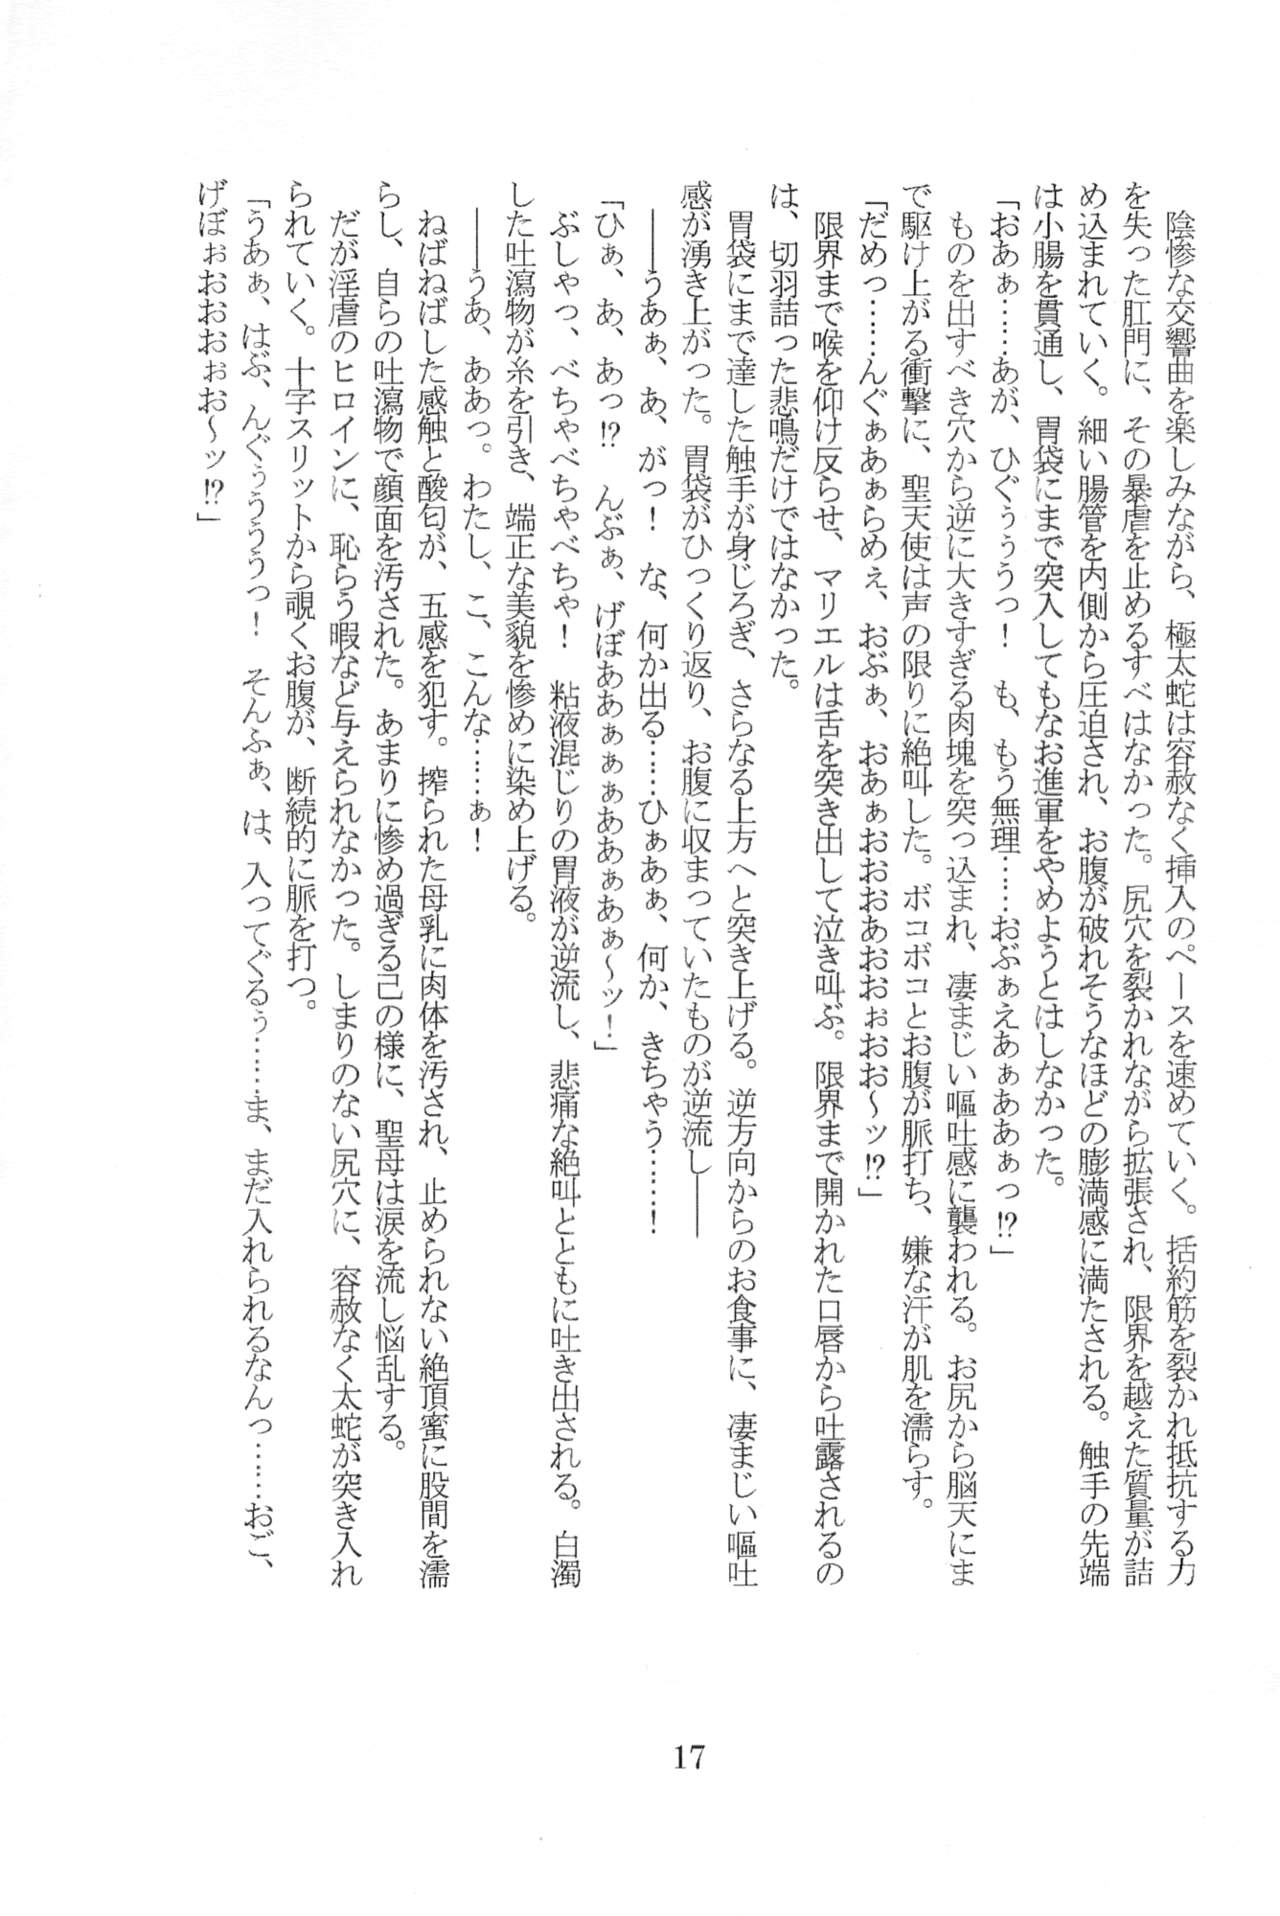 陰惨な交響曲を楽しみながら、極太蛇は容赦なく挿入のペースを速めていく。括約筋を裂かれ抵抗する力
を失った肛門に、その暴虐を止めるすべはなかった。尻穴を裂かれながら拡張され、限界を越えた質量が詰
め込まれていく。細い腸管を内側から圧迫され、お腹が破れそうなほどの膨満感に満たされる。触手の先端
は小腸を貫通し、胃袋にまで突入してもなお進軍をやめようとはしなかった。
「おあぁ……あが、ひぐぅぅうっ！　も、もう無理……おぶぁえあぁああぁっ!?」
ものを出すべき穴から逆に大きすぎる肉塊を突っ込まれ、凄まじい嘔吐感に襲われる。お尻から脳天にま
で駆け上がる衝撃に、聖天使は声の限りに絶叫した。ボコボコとお腹が脈打ち、嫌な汗が肌を濡らす。
「だめっ……んぐぁあぁらめぇ、おぶぁ、おあぉおおおあおおぉおお～ッ!?」
限界まで喉を仰け反らせ、マリエルは舌を突き出して泣き叫ぶ。限界まで開かれた口唇から吐露されるの
は、切羽詰った悲鳴だけではなかった。
胃袋にまで達した触手が身じろぎ、さらなる上方へと突き上げる。逆方向からのお食事に、凄まじい嘔吐
感が湧き上がった。胃袋がひっくり返り、お腹に収まっていたものが逆流し――
――うあぁ、あ、がっ！　な、何か出る……ひぁあぁ、何か、きちゃう……！
「ひぁ、あ、あっ!?　んぶぁ、げぼああぁぁぁああぁあぁ～ッ！」
ぶしゃっ、べちゃべちゃべちゃ！　粘液混じりの胃液が逆流し、悲痛な絶叫とともに吐き出される。白濁
した吐瀉物が糸を引き、端正な美貌を惨めに染め上げる。
――うあ、ああっ。わたし、こ、こんな……ぁ！
ねばねばした感触と酸匂が、五感を犯す。搾られた母乳に肉体を汚され、止められない絶頂蜜に股間を濡
らし、自らの吐瀉物で顔面を汚された。あまりに惨め過ぎる己の様に、聖母は涙を流し悩乱する。
だが淫虐のヒロインに、恥らう暇など与えられなかった。しまりのない尻穴に、容赦なく太蛇が突き入れ
られていく。十字スリットから覗くお腹が、断続的に脈を打つ。
「うあぁ、はぶ、んぐぅぅううっ！　そんふぁ、は、入ってぐるぅ……ま、まだ入れられるなんっ……おご、
げぼぉおおおぉお～ッ!?」
17